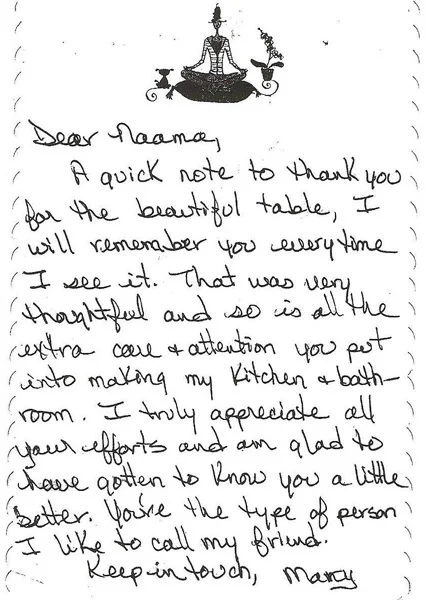 Dear Naama,
A quick note to thank you
for the beautiful table, I
will remember you everytime
I see it. That was very
thoughtful and so is all the
extra care + attention you put
into making my kitchen + bath-
room. I truly appreciate all
your efforts and am glad to
have gotten to know you a little
better. You're the type of person
I like to call my friend.
Keep in touch, Marcy